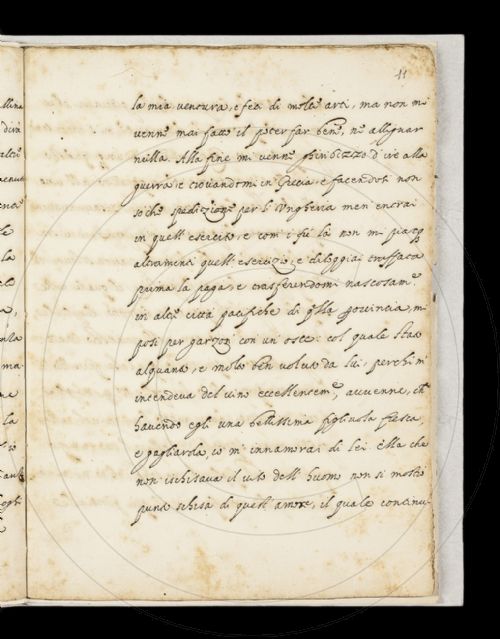 11
la mia ventura, e feci di molte arti, ma non mi
venne mai fatto il poter far bene, ne allignar
nella. Alla fine mi venne ghiribizzo d'ire alla
guerra, e trovandomi in Grecia, e facendosi non
so che spedizione per l'Ungheria men entrai
in quell'esercito, e com'i fù là non mi piacq
altrimenti quell'esercizio, e diloggiai truffata
prima la paga, e trasferendomi nascosam.te
in alc.e città pacifiche di q.lla provincia, mi
posi per garzon con un oste: col quale stato
alquanto, e molto ben voluto da lui, perch'i m'
intendeva del vino eccellentem.e, avvenne, ch'
havendo egli una bellissima figliuola fresca
e io m'innamorai di lei. Ella che
non ischifava il viso dell'huomo non si mostrò
punto schifa di quest'amore, il quale continu-